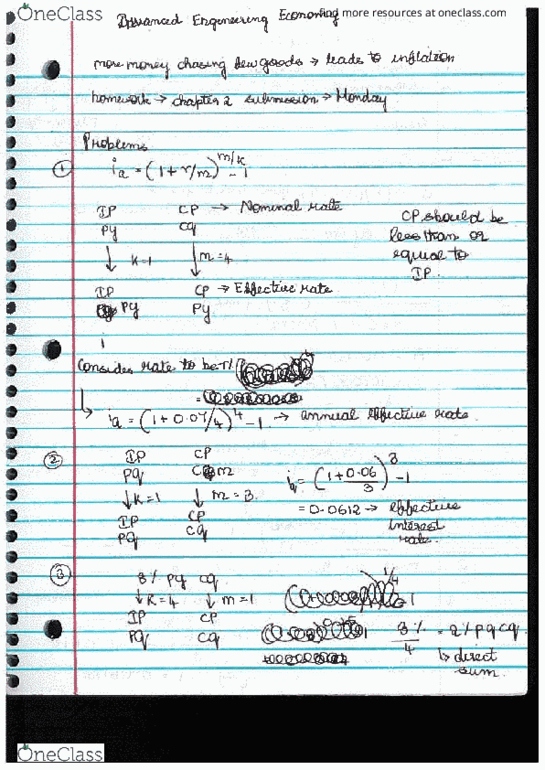 OneClass
more resources at oneclass.com
Advanced Engineering Economing
more money chasing few goods → leads to inflation
homework → chapter 2 submission → Monday
Problems
① ia = (1 + r/m)^m/k - 1
IP CP → Nominal rate
PY CQ
↓ K=1 ↓ m=4
IP CP → Effective rate
PY PY
1
CP should be
less than or
equal to
IP.
Consider rate to be
ia = (1 + 0.07/4)^4 - 1 → annual effective rate
② IP CP
PQ C m
↓ K=1 ↓ m=3.
IP CP
PQ CQ
= (1 + 0.06/3)^3 - 1
= 0.0612 → effective
interest
rate.
③ 8% PY CQ
↓ K=4 ↓ m=1
IP CP
PQ CQ
8%/4 = 2% PQ CQ.
↳ direct
sum.
OneClass